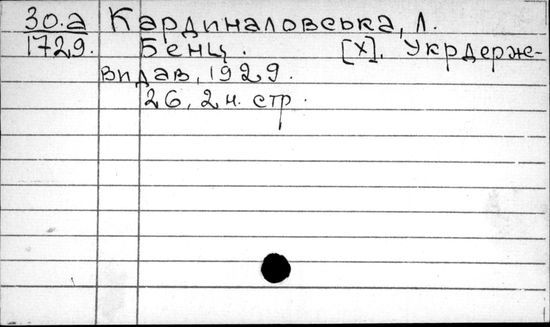 30.а Кардиналовська, Л.
1729. Бенц. [Х]. Укрдерж-
видав, 1929.
26, 2 н. стр.